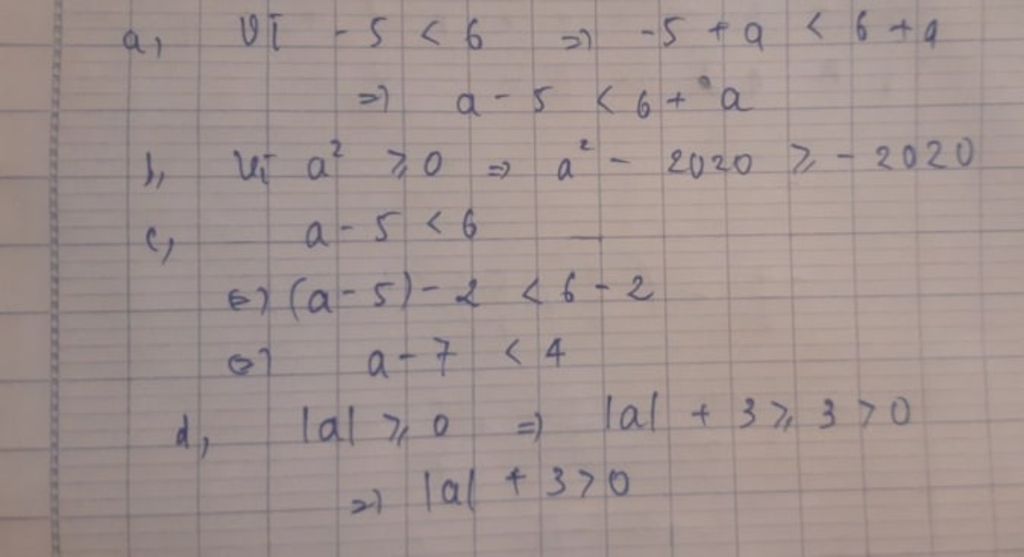 a, Vì - 5 < 6 => -5 + a < 6 + a
=> a - 5 < 6 + a
b, Vì a² ⩾ 0 => a² - 2020 ⩾ - 2020
c, a - 5 < 6
<=> (a - 5) - 2 < 6 - 2
<=> a - 7 < 4
d, |a| ⩾ 0 => |a| + 3 ⩾ 3 > 0
=> |a| + 3 > 0